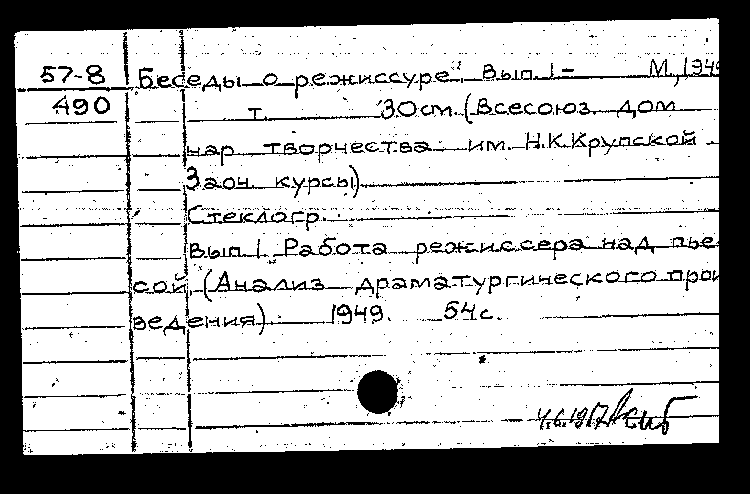 57-8 Беседы о режиссуре. Вып. 1- М, 194
490 т. 30см. (Всесоюз. дом
нар творчества им. Н.К.Крупской.
Заоч. курсы)
Стеклогр.
Вып. 1. Работа режиссера над пье-
сой. (Анализ драматургического прои
ведения). 1949. 54с.